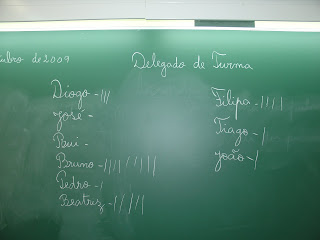 de 2009
Delegado de Turma
Diogo - |||
José -
Rui -
Bruno - |||||||||
Pedro - |
Beatriz - |||||
Filipa - ||||
Tiago - |
João - |